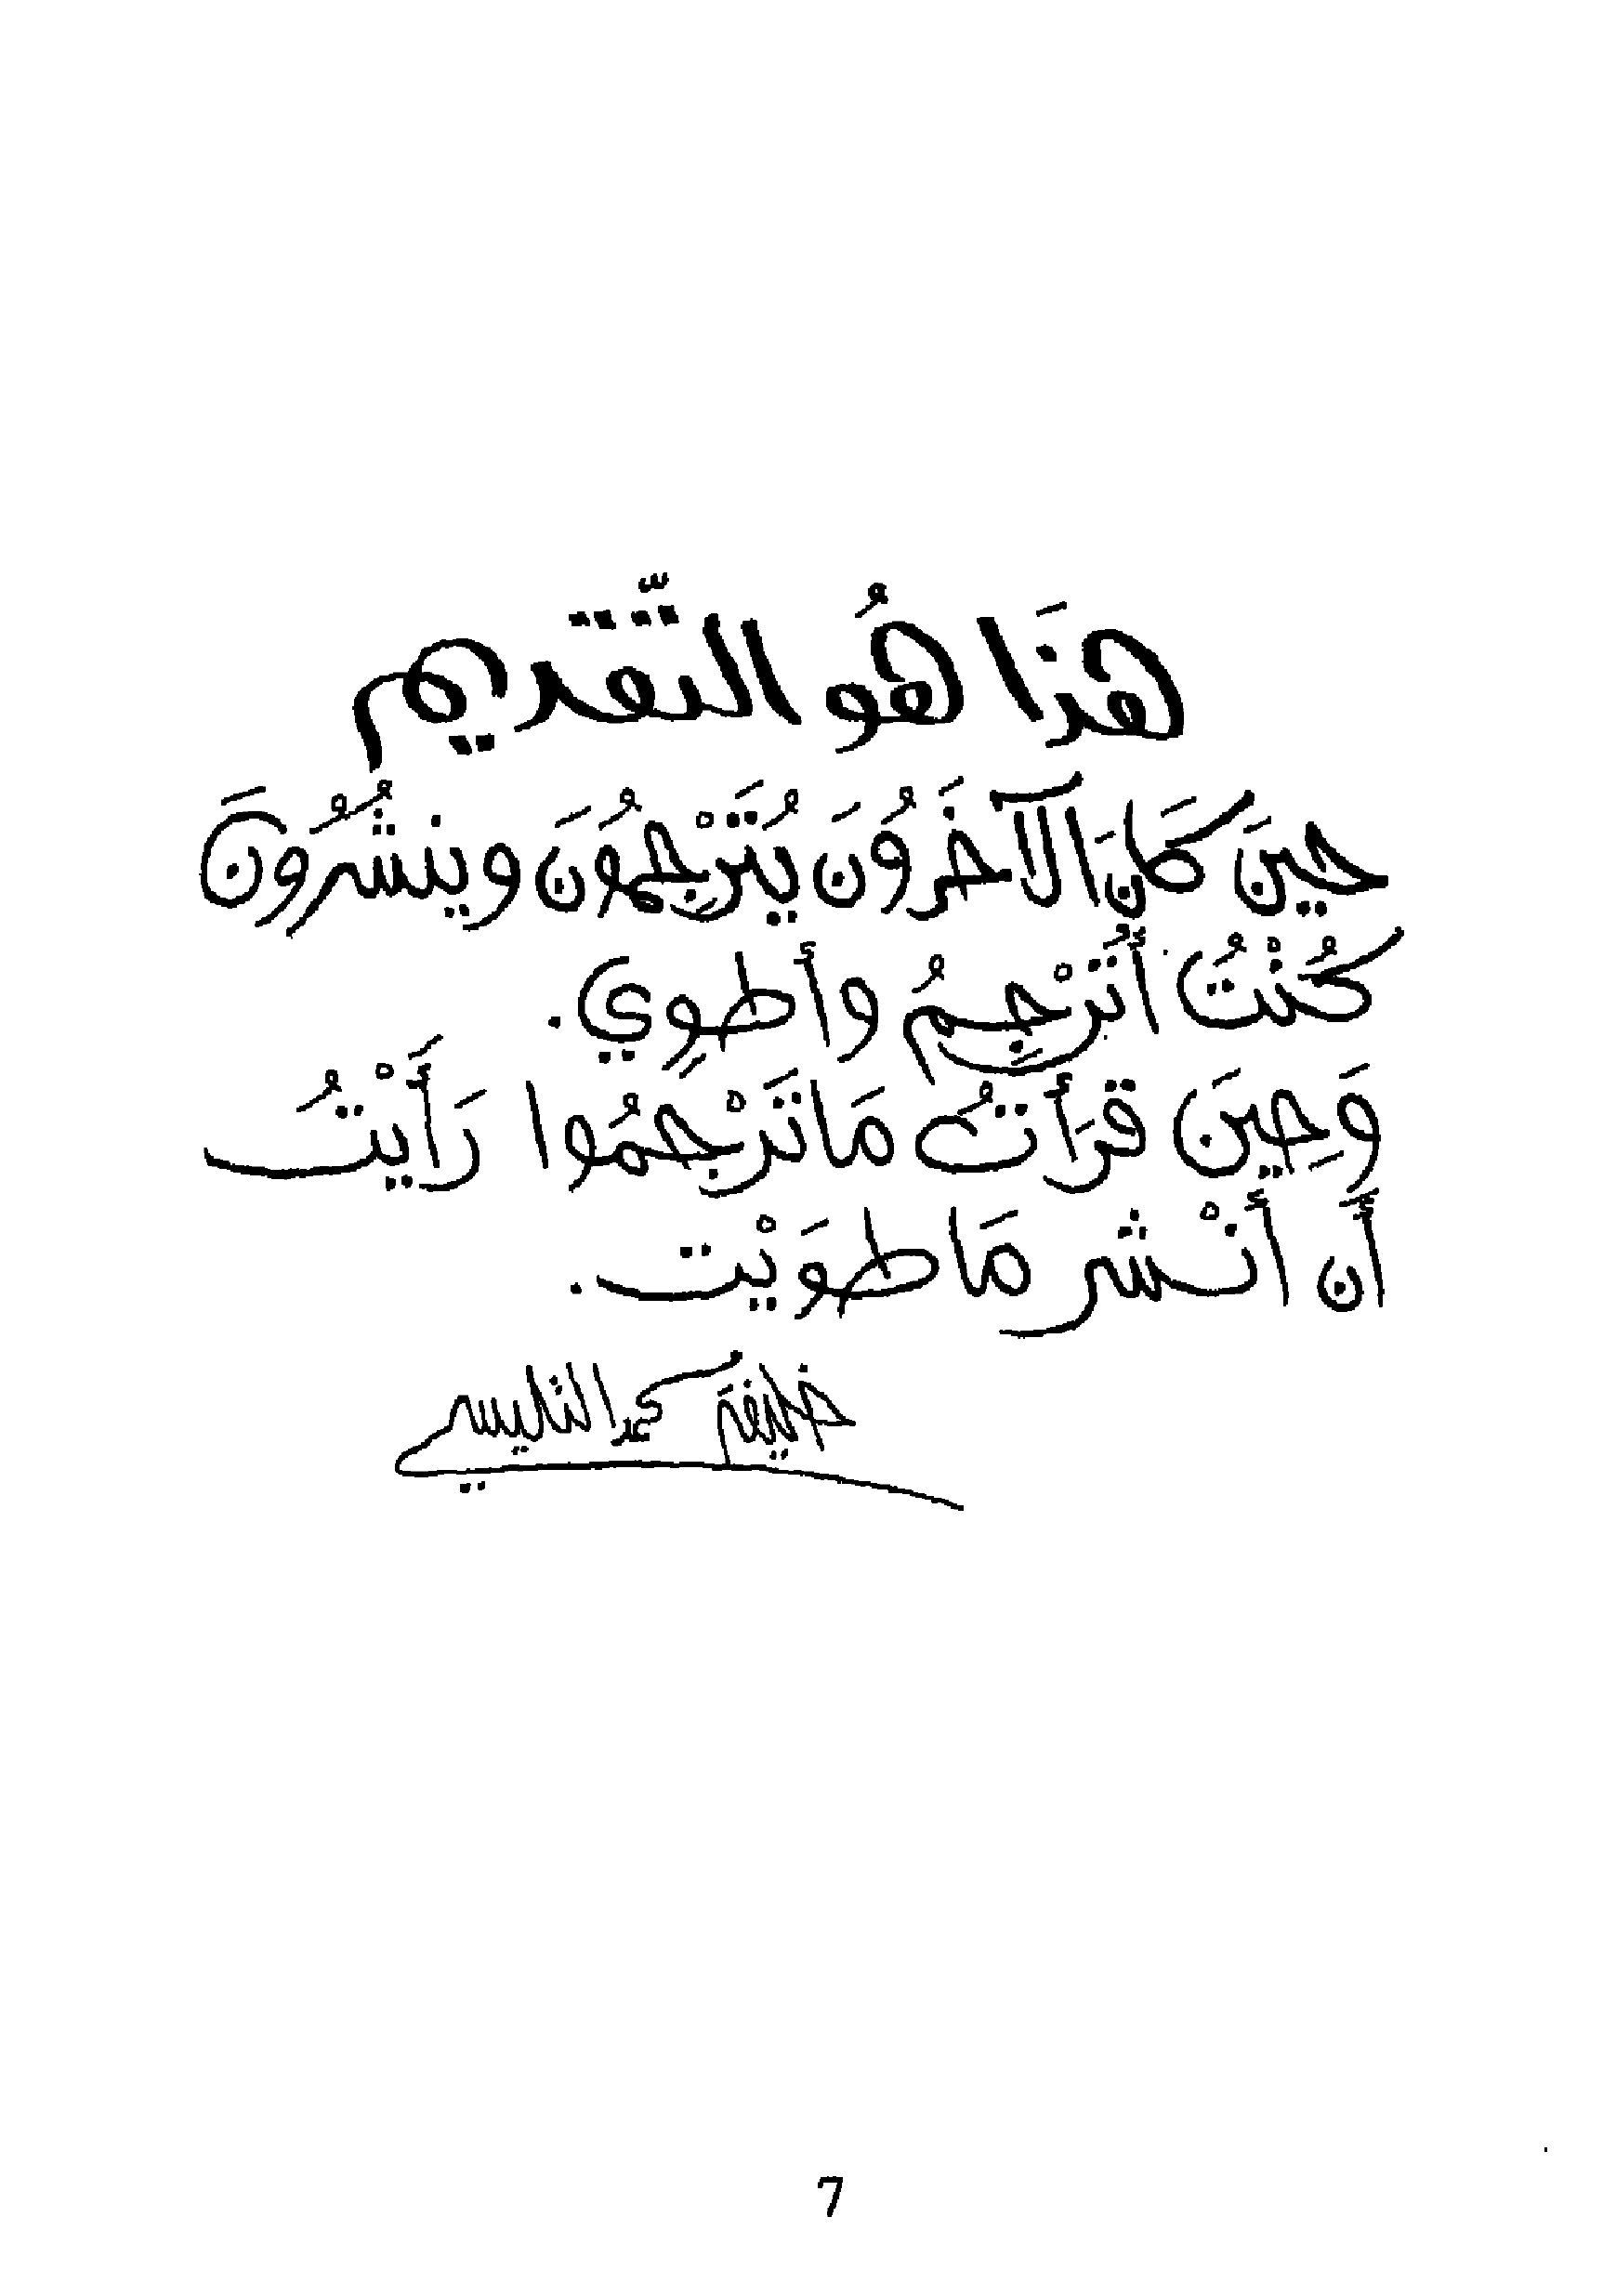 هذَا هُو التّقديم
حينَ كَانَ الآخَرُونَ يُتَرْجِمُونَ وينشُرُونَ
كُنْتُ أُتَرْجِمُ وأطوِي.
وَحِينَ قرَأتُ مَا تَرْجَمُوا رَأَيْتُ
أَن أَنْشر مَا طوَيْت.
خليفة محمد التليسي
7